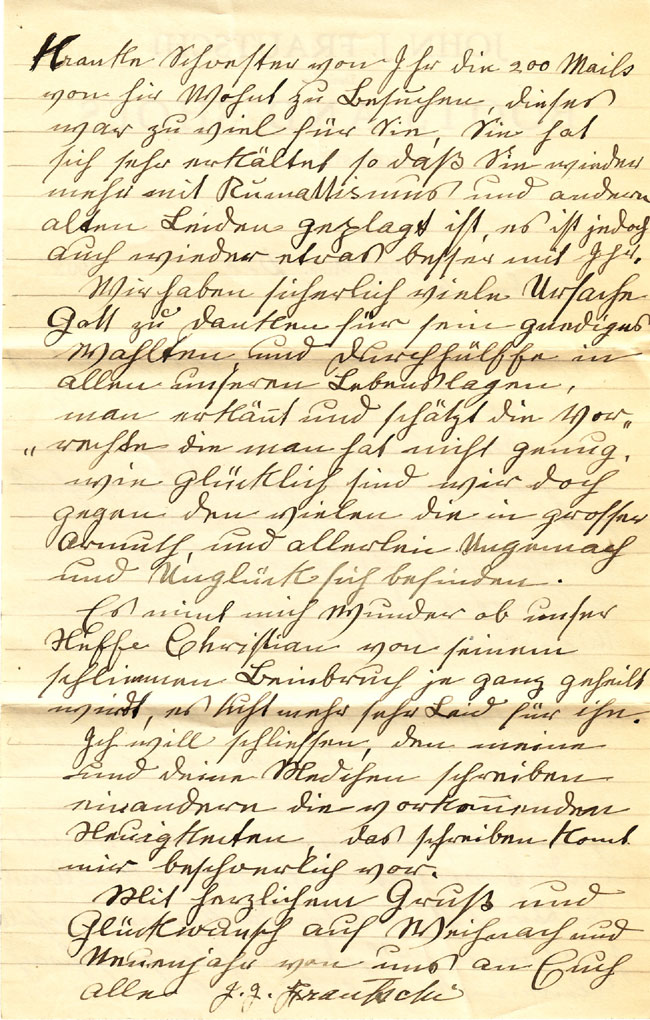 Kranke Schwester von Ihr die 200 Mails
von hir Wohnt zu Besuchen, dieses
war zu viel für Sie, Sie hat
sich sehr erkältet so daß Sie wieder
mehr mit Rumattismus und andern
alten Leiden geplagt ist, es ist jedoch
auch wieder etwas besser mit Ihr.
Wir haben sicherlich viele Ursache
Gott zu danken für sein gnediges
Wahlten und Durchhülffe in
allen unseren Lebenslagen,
man erkännt und schätzt die Vor„
„rechte die man hat nicht genug.
wie glücklich sind wir doch
gegen den vielen die in grosser
Armuth, und allerlein Ungemach
und Unglück sich befinden.
Es nimt mich Wunder ob unser
Neffe Christian von seinem
schlimmen Beinbruch je ganz geheilt
wirdt, es thut mehr sehr Leid für ihn.
Ich will schliessen, den meine
und deine Medchen schreiben
einandern die vorkommenden
Neuigkeiten, das schreiben komt
mir beschwerlich vor.
Mit herzlichem Gruß und
Glückwunsch auf Weihnach und
Neuenjahr von uns an Euch
alle J. J. Frautschi